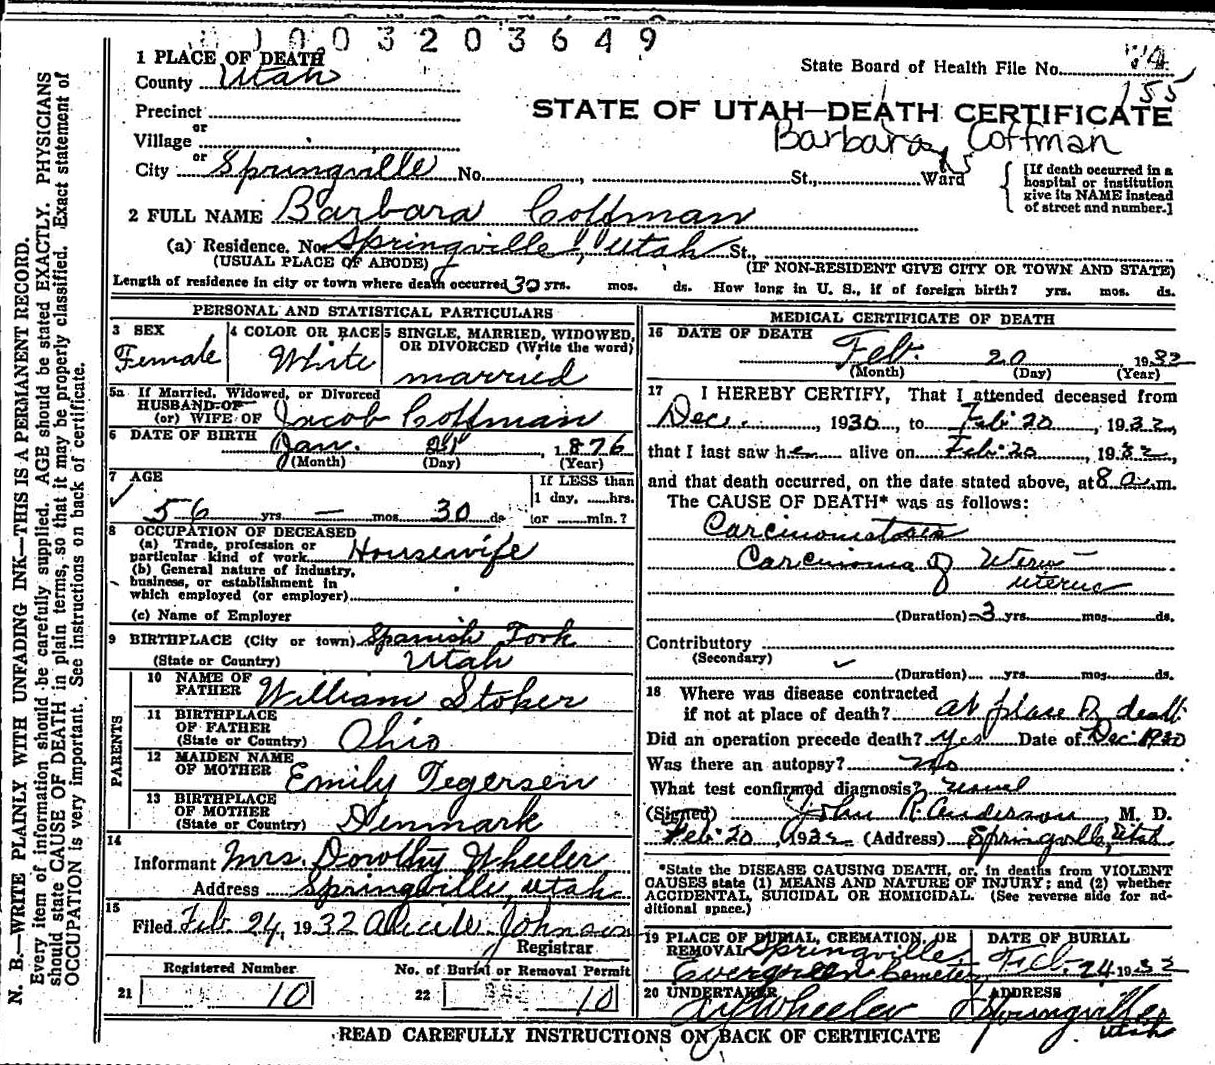 1 0 0 3 2 0 3 6 4 9
1 PLACE OF DEATH
County Utah
State Board of Health File No. 74
155
Precinct
or
Village
STATE OF UTAH—DEATH CERTIFICATE
Barbara Coffman
or
City Springville No. , St., Ward
[If death occurred in a
hospital or institution
give its NAME instead
of street and number.]
2 FULL NAME Barbara Coffman
(a) Residence. No. Springville, Utah St.,
(USUAL PLACE OF ABODE) (IF NON-RESIDENT GIVE CITY OR TOWN AND STATE)
Length of residence in city or town where death occurred 30 yrs. mos. ds. How long in U. S., if of foreign birth? yrs. mos. ds.
PERSONAL AND STATISTICAL PARTICULARS
3 SEX
Female
4 COLOR OR RACE
White
5 SINGLE, MARRIED, WIDOWED,
OR DIVORCED (Write the word)
married
5a If Married, Widowed, or Divorced
HUSBAND OF
(or) WIFE OF Jacob Coffman
6 DATE OF BIRTH Jan. 21, 1876
(Month) (Day) (Year)
7 AGE
56 yrs. — mos. 30 ds.
If LESS than
1 day, ......hrs.
or ........min.?
8 OCCUPATION OF DECEASED
(a) Trade, profession or
particular kind of work Housewife
(b) General nature of industry,
business, or establishment in
which employed (or employer)
(c) Name of Employer
9 BIRTHPLACE (City or town) Spanish Fork
(State or Country) Utah
PARENTS
10 NAME OF
FATHER William Stoker
11 BIRTHPLACE
OF FATHER
(State or Country) Ohio
12 MAIDEN NAME
OF MOTHER Emily Tegersen
13 BIRTHPLACE
OF MOTHER
(State or Country) Denmark
14
Informant Mrs. Dorothy Wheeler
Address Springville, Utah
15
Filed Feb. 24, 1932 Johnson
Registrar
Registered Number
21 10
No. of Burial or Removal Permit
22 10
MEDICAL CERTIFICATE OF DEATH
16 DATE OF DEATH
Feb. 20 1932
(Month) (Day) (Year)
17 I HEREBY CERTIFY, That I attended deceased from
Dec. , 1930, to Feb. 20 , 1932,
that I last saw her alive on Feb. 20 , 1932,
and that death occurred, on the date stated above, at 8 a. m.
The CAUSE OF DEATH* was as follows:
Carcinomatosis
Carcinoma of Uterus
uterus
(Duration) 3 yrs. mos. ds.
Contributory
(Secondary)
(Duration) yrs. mos. ds.
18 Where was disease contracted
if not at place of death? at place of death
Did an operation precede death? Yes Date of Dec. 1930
Was there an autopsy? no
What test confirmed diagnosis? usual
(Signed) John R. Anderson, M. D.
Feb. 20, 1932 (Address) Springville, Utah
*State the DISEASE CAUSING DEATH, or, in deaths from VIOLENT
CAUSES state (1) MEANS AND NATURE OF INJURY; and (2) whether
ACCIDENTAL, SUICIDAL OR HOMICIDAL. (See reverse side for ad-
ditional space.)
19 PLACE OF BURIAL, CREMATION, OR
REMOVAL Springville
Evergreen Cemetery
DATE OF BURIAL
Feb. 24 1932
20 UNDERTAKER
Wheeler
ADDRESS
Springville
Utah
READ CAREFULLY INSTRUCTIONS ON BACK OF CERTIFICATE
N. B.—WRITE PLAINLY WITH UNFADING INK—THIS IS A PERMANENT RECORD.
Every item of information should be carefully supplied. AGE should be stated EXACTLY. PHYSICIANS
should state CAUSE OF DEATH in plain terms, so that it may be properly classified. Exact statement of
OCCUPATION is very important. See instructions on back of certificate.